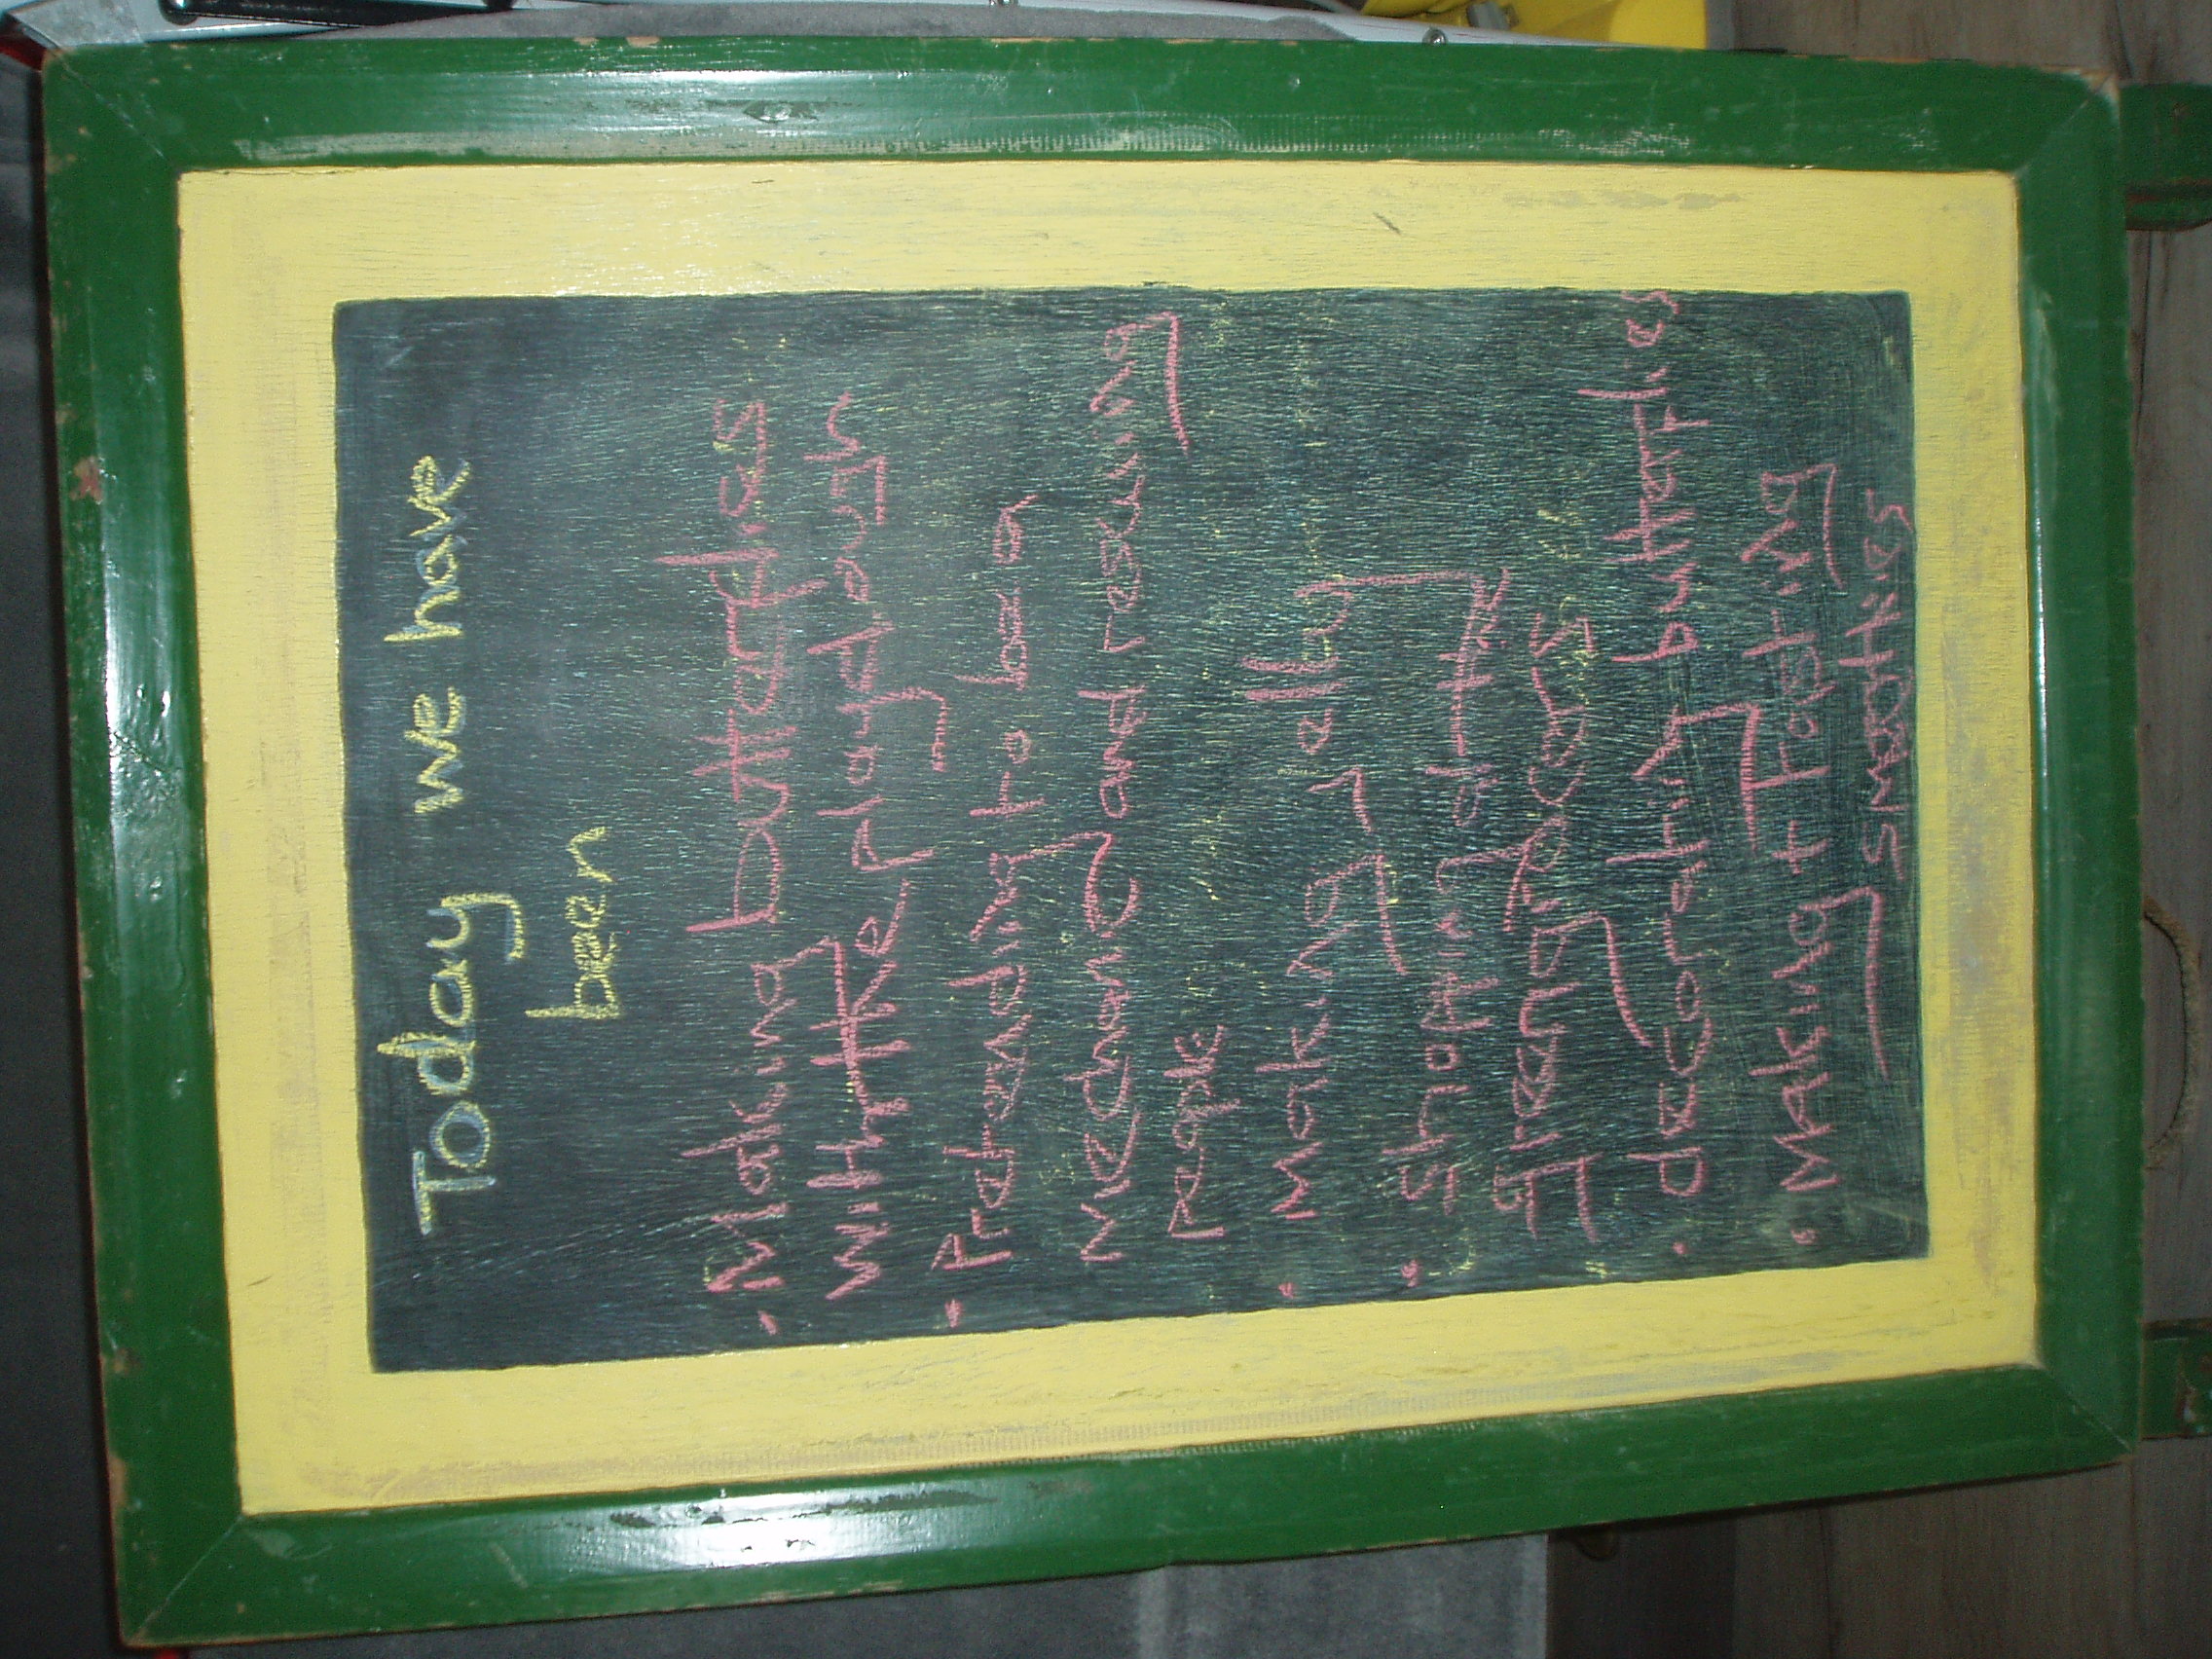 Today we have
been
- Making butterflies
with the playdough
- Pretending to be a
Mechanic and rescuing
people
• Making jelly
• Shopping at the
greengrocers
• decorating butterflies
• Making + Tasting
smoothies